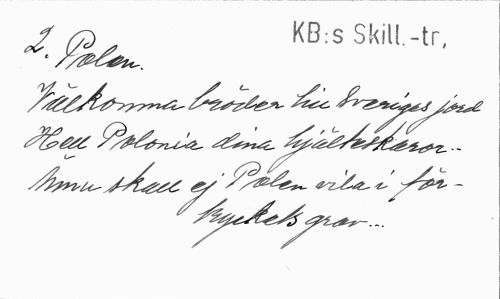 KB:s Skill.-tr,
2. Polen.
Välkomna bröder till Sveriges jord
Hell Polonia dina hjälteskaror..
Ännu skall ej Polen vila i för-
tryckets grav...